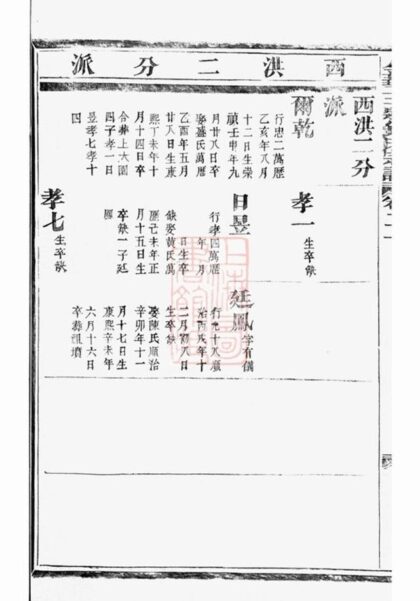 西洪二分派
西洪二分
派
爾乾
行忠二萬曆
乙亥年八月
十二日生崇
禎壬申年九
月廿八日卒
娶盛氏萬曆
乙酉年五月
廿八日生康
熙丁未年十
月十四日卒
合葬上大園
四子孝一日
昱孝七孝十
四
孝一
生卒缺
日昱
行孝四萬曆
年 月
日生卒
缺娶黃氏萬
曆己未年正
月十一日生
卒缺一子廷
孝七
生卒缺
廷鳳
字有儀
行元十八順
治丙戌年十
二月初八日
生卒缺
娶陳氏順治
辛卯年十一
月十七日生
康熙辛未年
六月十六日
卒葬祖墳